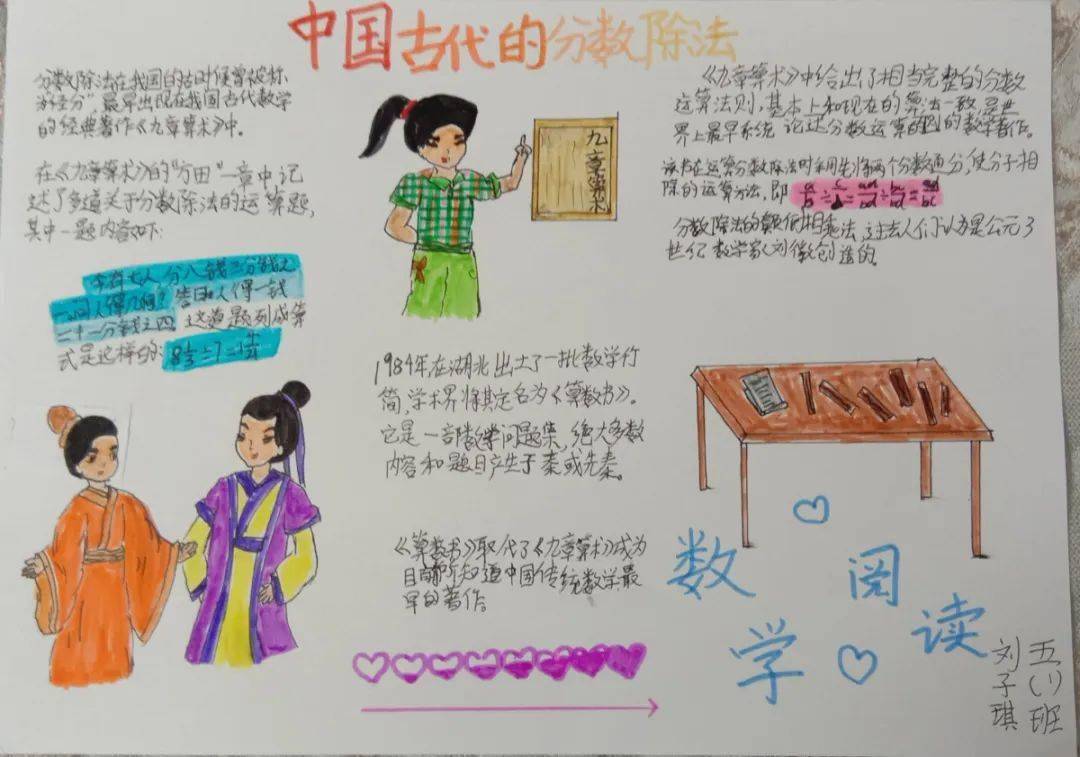 中国古代的分数除法
分数除法在我国的古时候曾被称
为"经分",最早出现在我国古代数学
的经典著作《九章算术》中。
在《九章算术》的"方田"一章中记
述了多道关于分数除法的运算题,
其中一题内容如下:
今有七人分八钱三分钱之
一,问人得几何?答曰:人得一钱
二十一分钱之四 这道题列成算
式是这样的:
九章算术
《九章算术》中给出了相当完整的分数
运算法则,基本上和现在的算法一致,是世
界上最早系统 论述分数运算的 的数学著作。
该书在运算分数除法时采用先将两个分数通分,使分子相
除的运算方法,即
分数除法的颠倒相乘法,过去人们认为是公元3
世纪数学家刘徽创造的。
1984年在湖北出土了一批数学竹
简,学术界将其定名为《算数书》。
它是一部数学问题集,绝大多数
内容和题目产生于秦或先秦。
《算数书》取代了《九章算术》成为
目前所知道中国传统数学最
早的著作。
数学
阅读
五(1)班
刘子琪